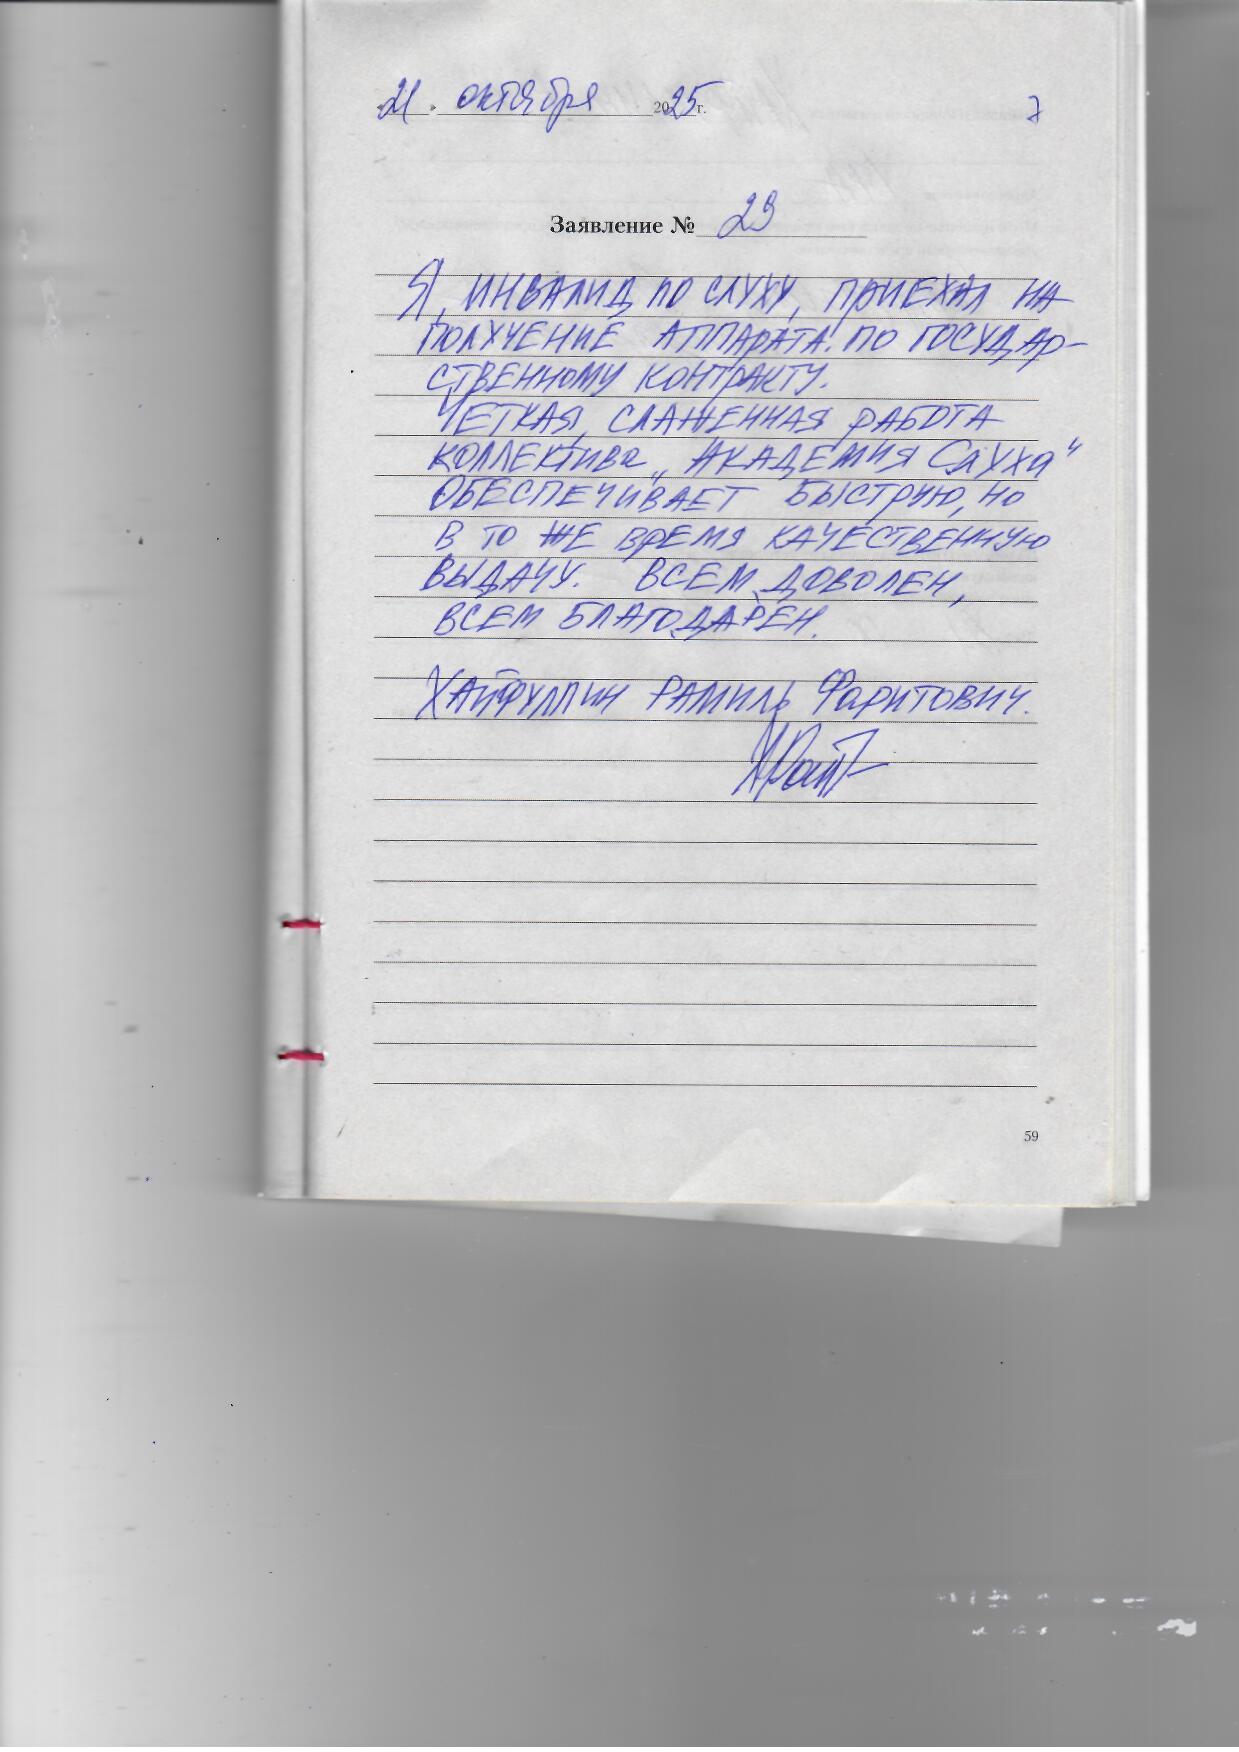 «21» октября 2025г.
7
Заявление № 29
Я, ИНВАЛИД ПО СЛУХУ, ПРИЕХАЛ НА
ПОЛУЧЕНИЕ АППАРАТА ПО ГОСУДАР-
СТВЕННОМУ КОНТРАКТУ.
ЧЕТКАЯ, СЛАЖЕННАЯ РАБОТА
КОЛЛЕКТИВа „АКАДЕМИЯ СлУХа"
ОБЕСПЕЧИВАЕТ БЫСТРУЮ, НО
В ТО ЖЕ ВРЕМЯ КАЧЕСТВЕННУЮ
ВЫДАЧУ. ВСЕМ ДОВОЛЕН,
ВСЕМ БЛАГОДАРЕН.
ХАЙФУЛЛИН РАМИЛЬ ФАРИТОВИЧ.
59